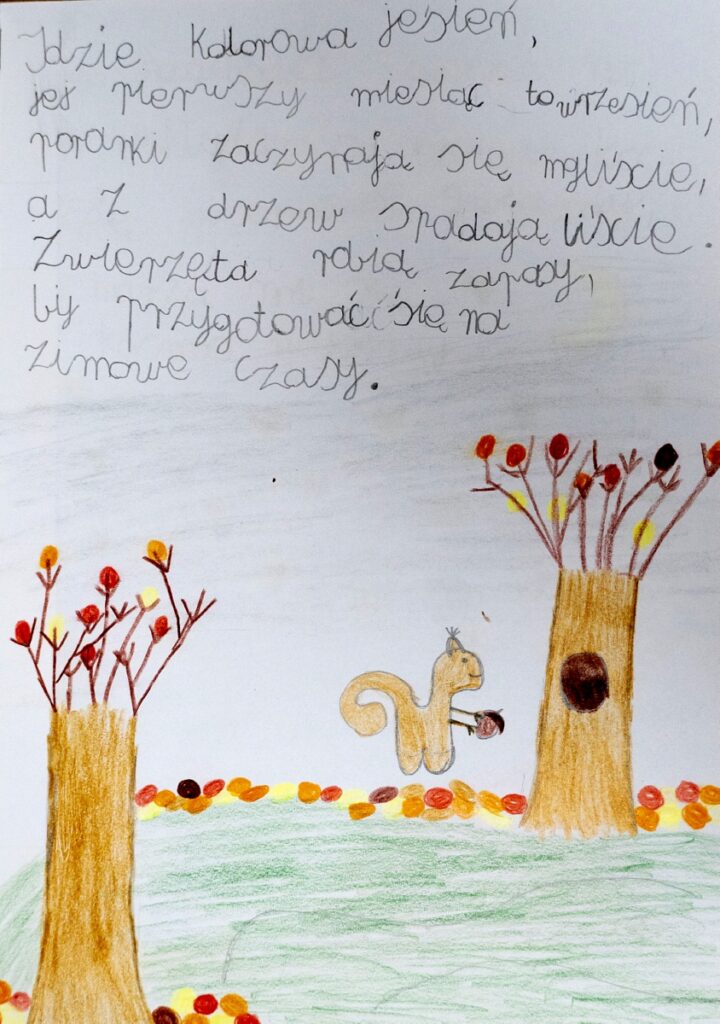 Idzie kolorowa jesień,
jej pierwszy miesiąc to wrzesień,
poranki zaczynają się mgliście,
a z drzew spadają liście.
Zwierzęta robią zapasy,
by przygotować się na
zimowe czasy.